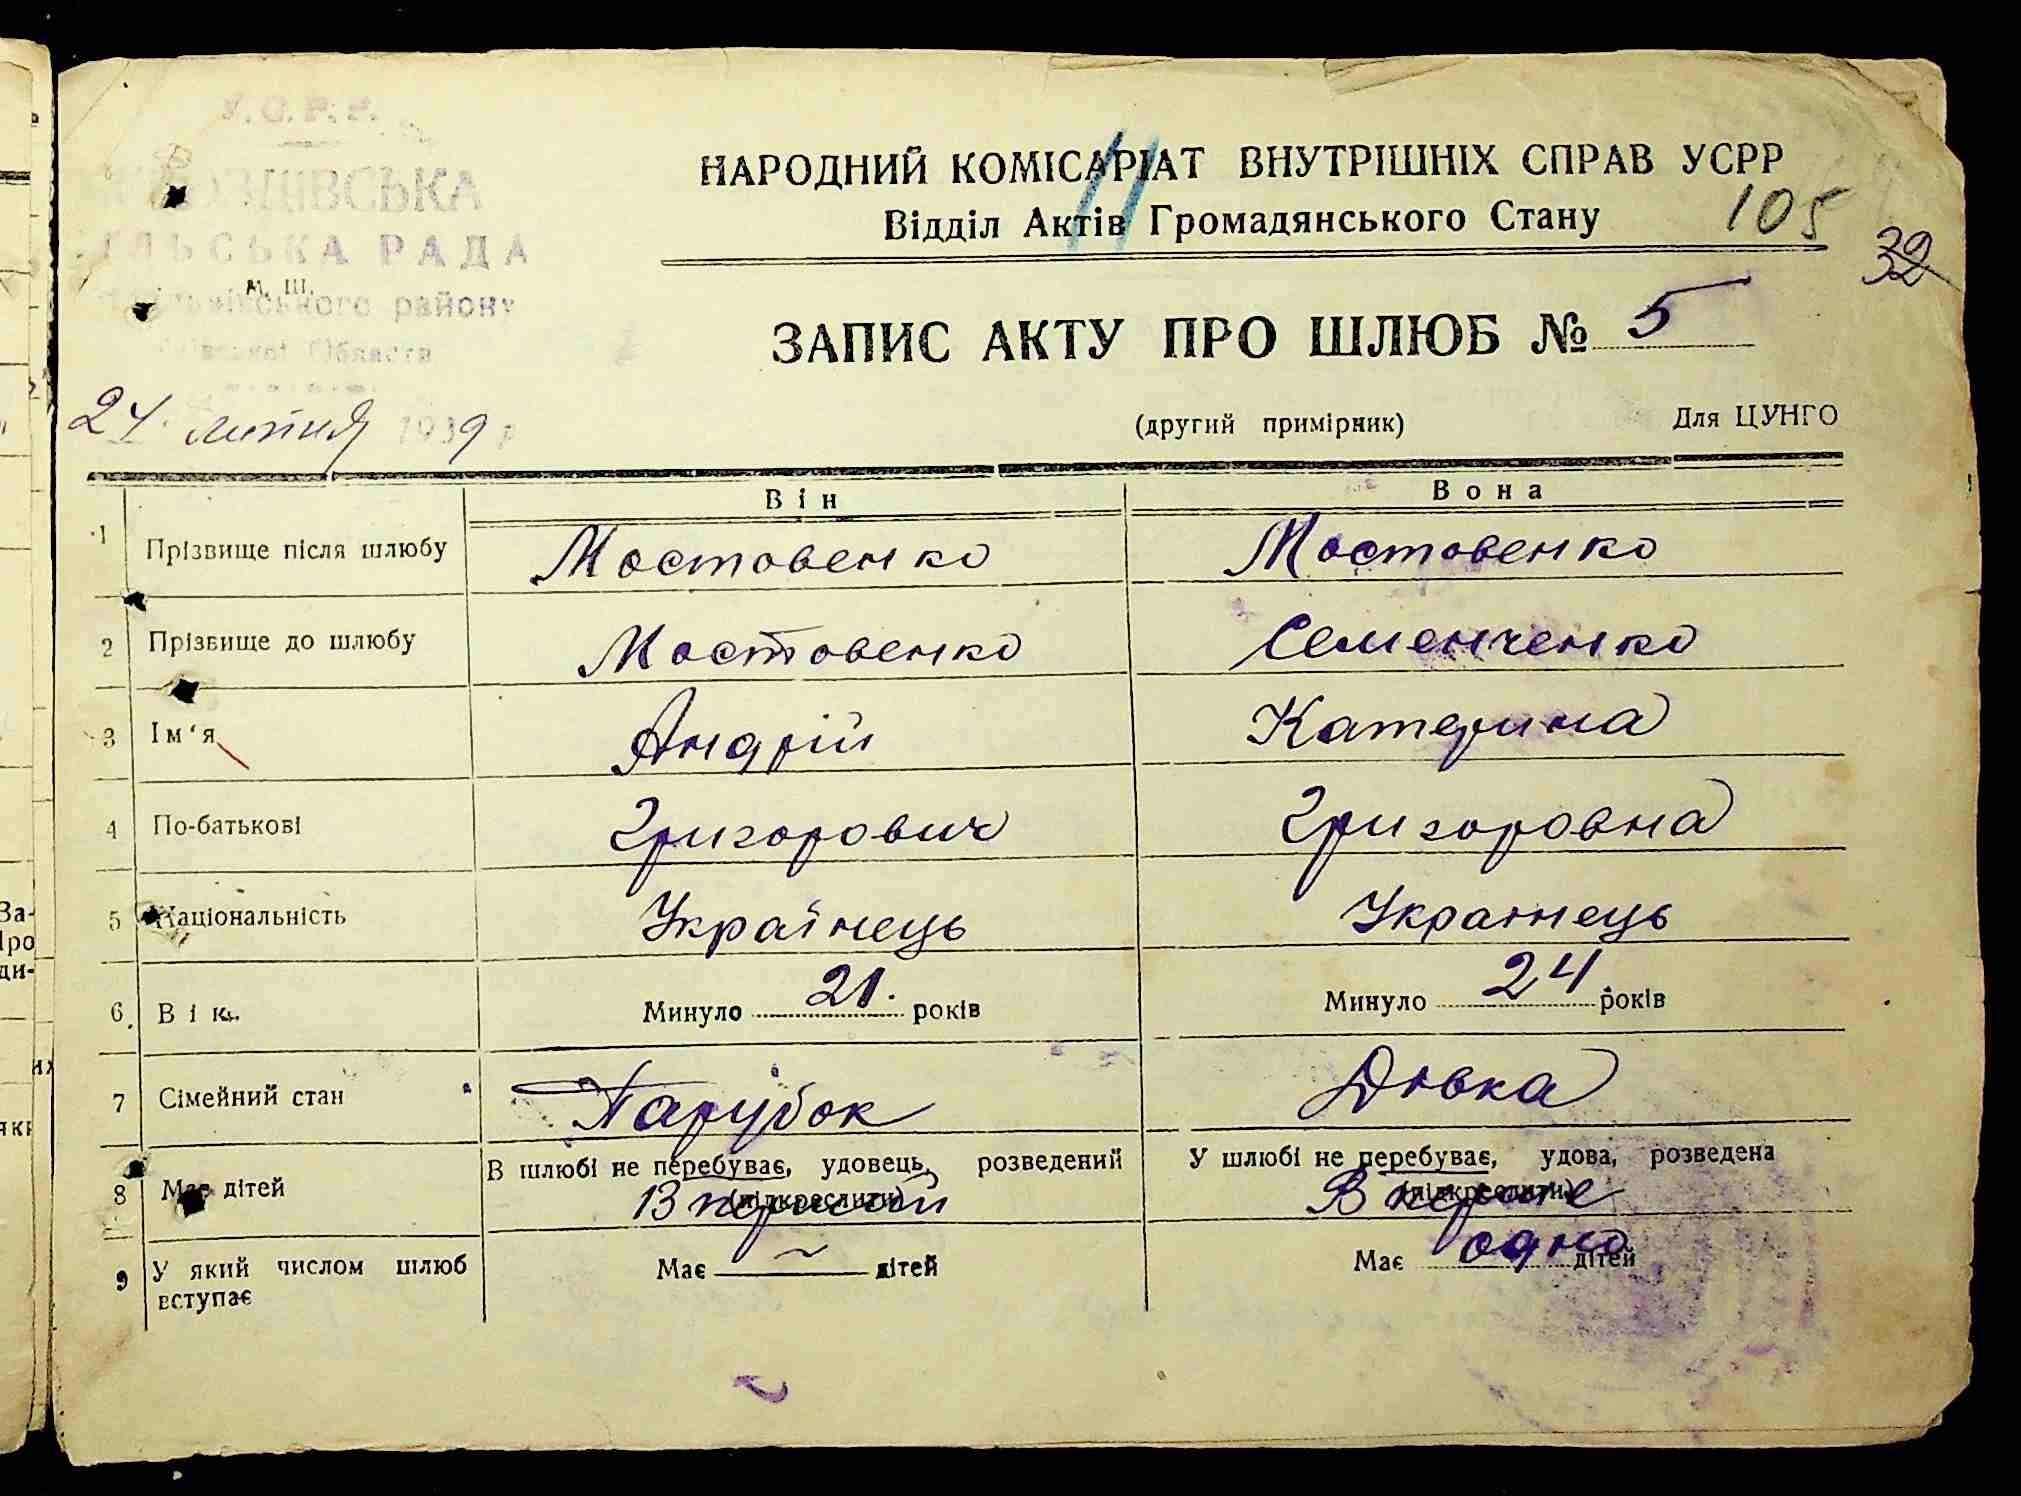 У.С.Р.Р.
РАДА
району
М. Ш.
НАРОДНИЙ КОМІСАРІАТ ВНУТРІШНІХ СПРАВ УСРР
11
Відділ Актів Громадянського Стану
105
32
ЗАПИС АКТУ ПРО ШЛЮБ № 5
24 липня 1939 р
(другий примірник)
Для ЦУНГО
Він
Вона
1 Прізвище після шлюбу Мостовенко Мостовенко
2 Прізвище до шлюбу Мостовенко Семенченко
3 Ім'я Андрій Катерина
4 По-батькові Григорович Григоровна
5 Національність Українець Українець
6. Вік Минуло 21. років Минуло 24 років
7 Сімейний стан Парубок Дівка
В шлюбі не перебуває, удовець, розведений У шлюбі не перебуває, удова, розведена
(підкреслити) (підкреслити)
8 Має дітей В
9 У який числом шлюб вступає Має ~ дітей Має одно дітей
За-
Про
ди-
их